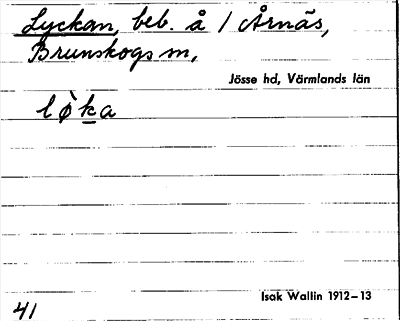 Lyckan, beb. å 1 Årnäs,
Brunskogs sn,
Jösse hd, Värmlands län
lø̀ḵa
Isak Wallin 1912–13
41